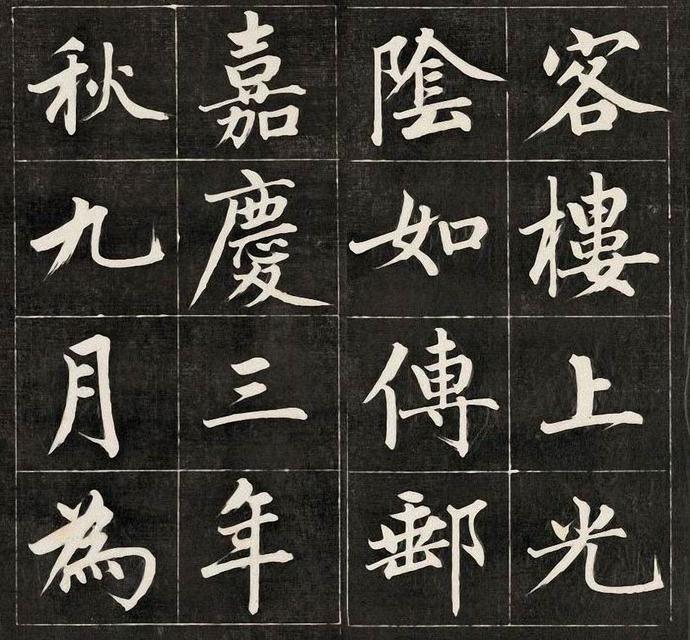 客樓上光
陰如傳郵
嘉慶三年
秋九月為